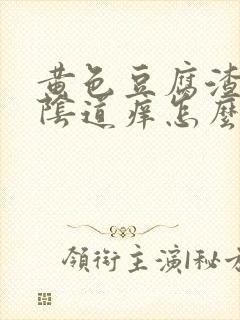 黄色豆腐渣
陰道痒怎麽
領衔主演|秘方